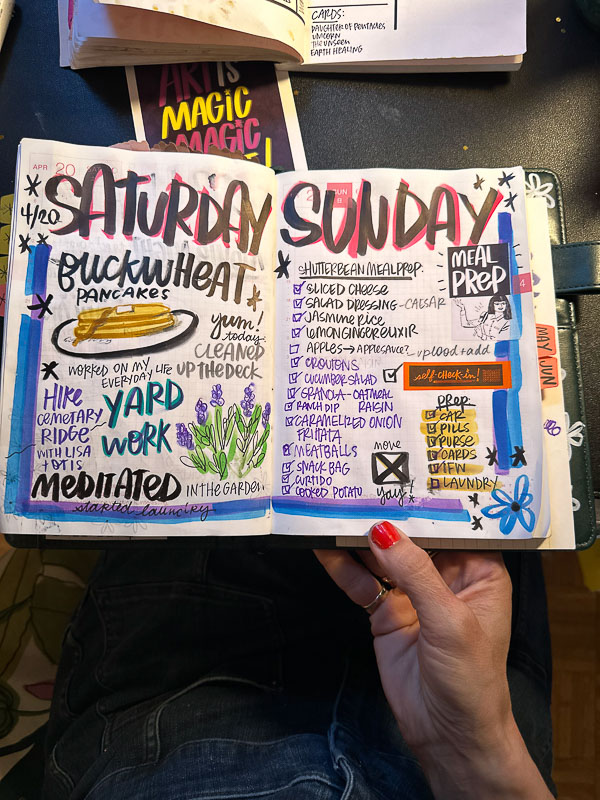 CARDS:
DAUGHTER OF PENTACLES
UNICORN
THE UNSEEN
EARTH HEALING
ART IS
MAGIC
MAGIC
APR 20
SATURDAY
4/20
BUCKWHEAT
PANCAKES
yum!
today
CLEANED
UP THE DECK
WORKED ON MY
EVERYDAY LIFE
HIKE
CEMETARY
RIDGE
WITH LISA
+ OTIS
YARD
WORK
MEDITATED IN THE GARDEN.
started laundry
SUNDAY
SHUTTERBEAN MEAL PREP:
SLICED CHEESE
SALAD DRESSING - CAESAR
JASMINE RICE
LEMON GINGER ELIXIR
APPLES → APPLESAUCE?
CROUTONS
CUCUMBER SALAD
GRANOLA - OATMEAL
RAISIN
RANCH DIP
CARAMELIZED ONION
FRITTATA
MEATBALLS
SNACK BAG
CURTIDO
COOKED POTATO
MEAL
PREP
4
upload + add
self-check-in!
PREP:
CAR
PILLS
PURSE
CARDS
IFW
LAUNDRY
move
yay!
MAY
JUN